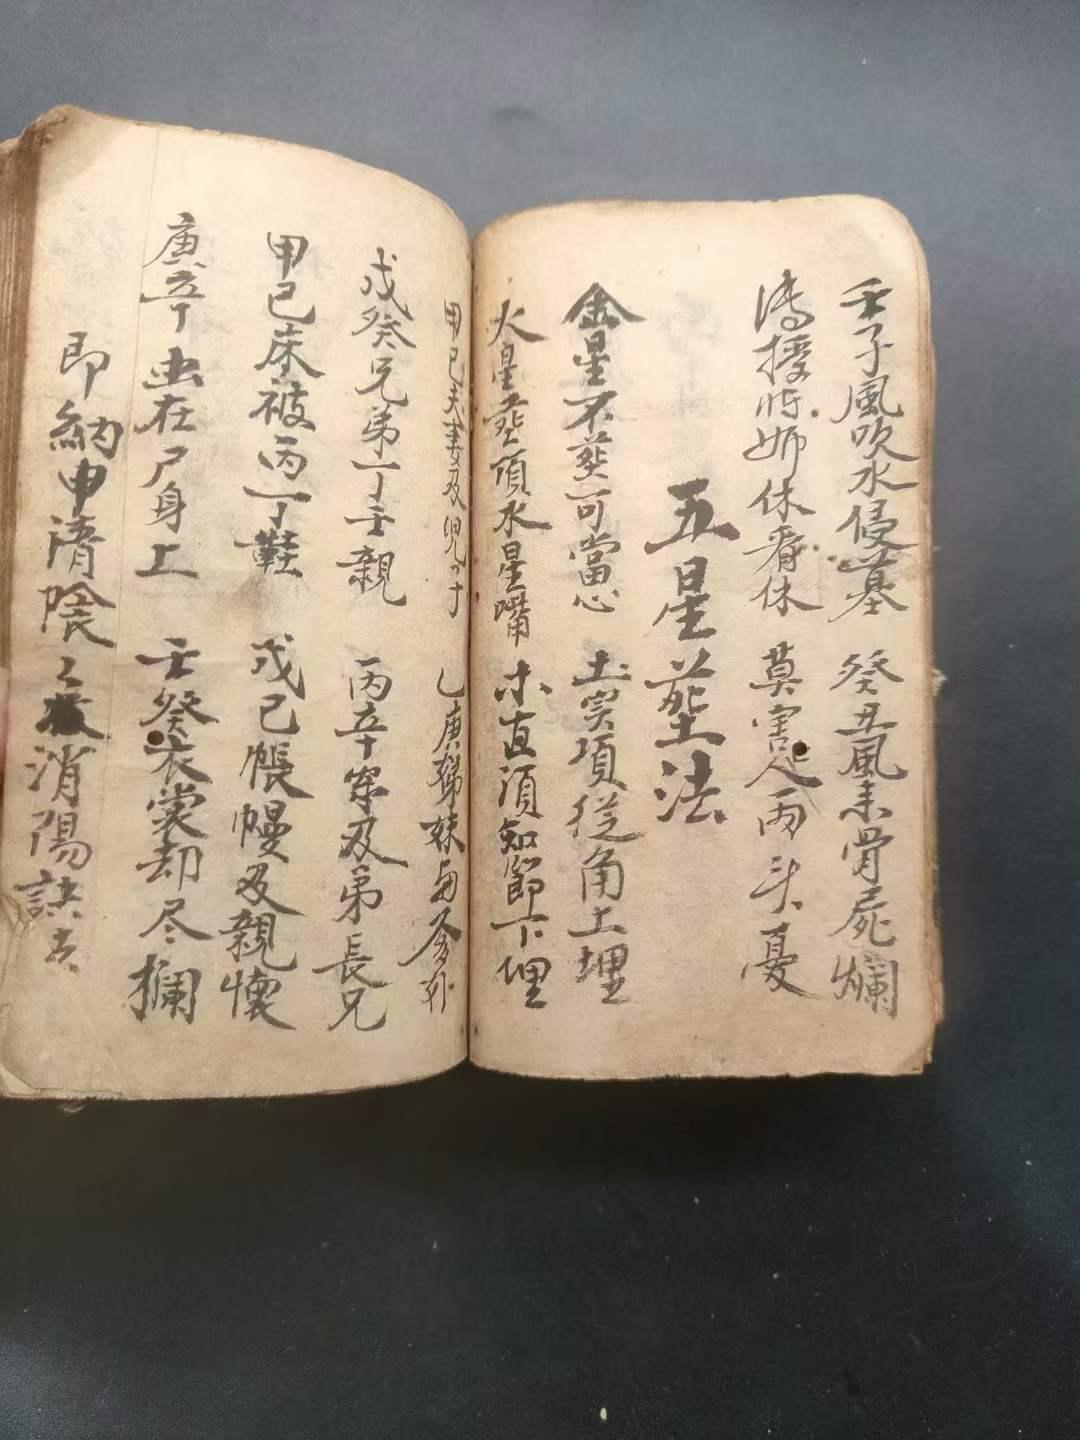 壬子風吹水侵墓 癸丑風来骨屍爛
傳授時師休看休 莫害他人両头憂
五星塟法
金星不葬可當心 土宍項從角土埋
火星塟頂水星嘴 木直須知節下埋
甲己夫妻及児子 乙庚娣妹与爹
戊癸兄弟丁壬親 丙辛及弟長兄
甲己床被丙丁鞋 戊己帳幔及親懷
庚辛虫在尸身上 壬癸衣裳却尽攔
即納申清陰消陽訣